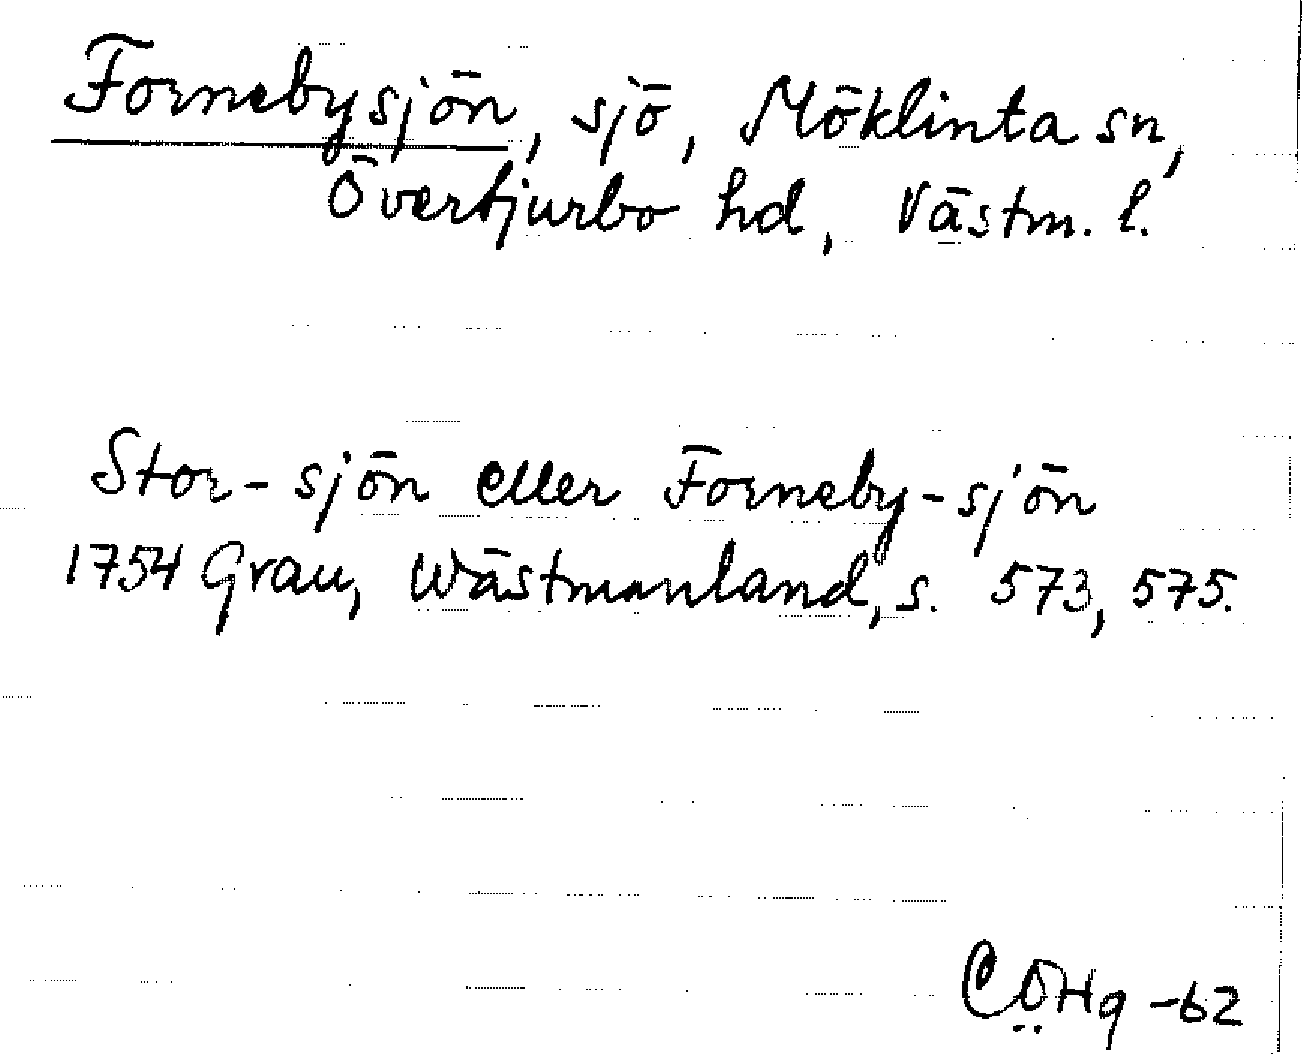 Fornebysjön, sjö, Möklinta sn,
Övertjurbo hd, Västm. l.
Stor-sjön eller Forneby-sjön
1754 Grau, Wästmanland, s. 573, 575.
CÖHg -62